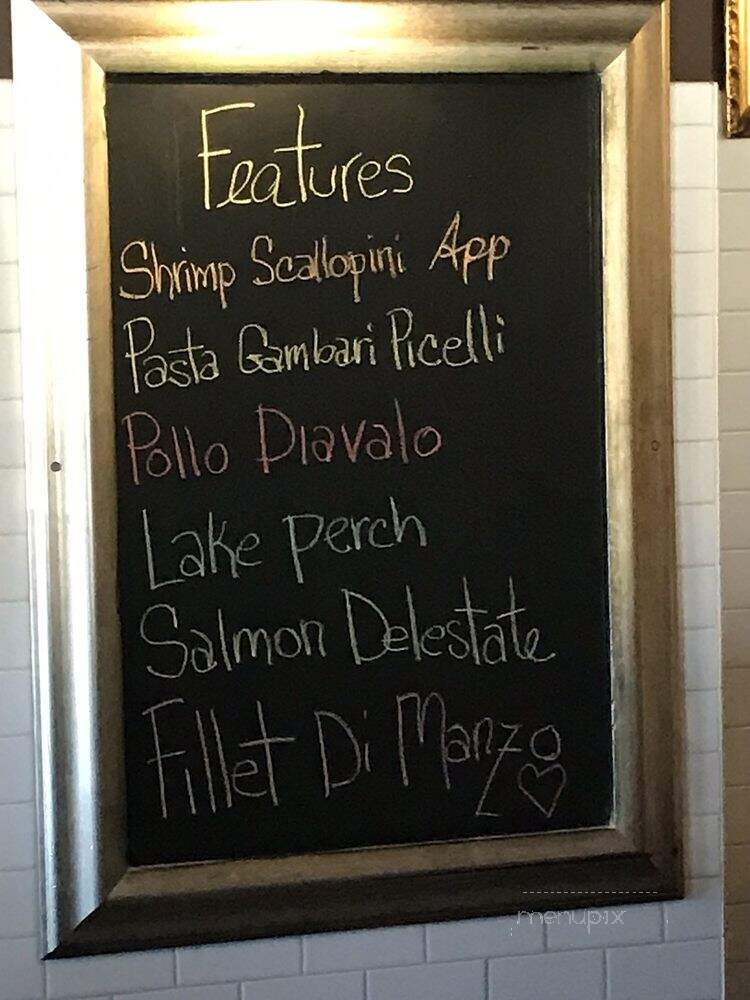 Features
Shrimp Scallopini App
Pasta Gambari Picelli
Pollo Diavalo
Lake perch
Salmon Delestate
Fillet Di Manzo
menupix